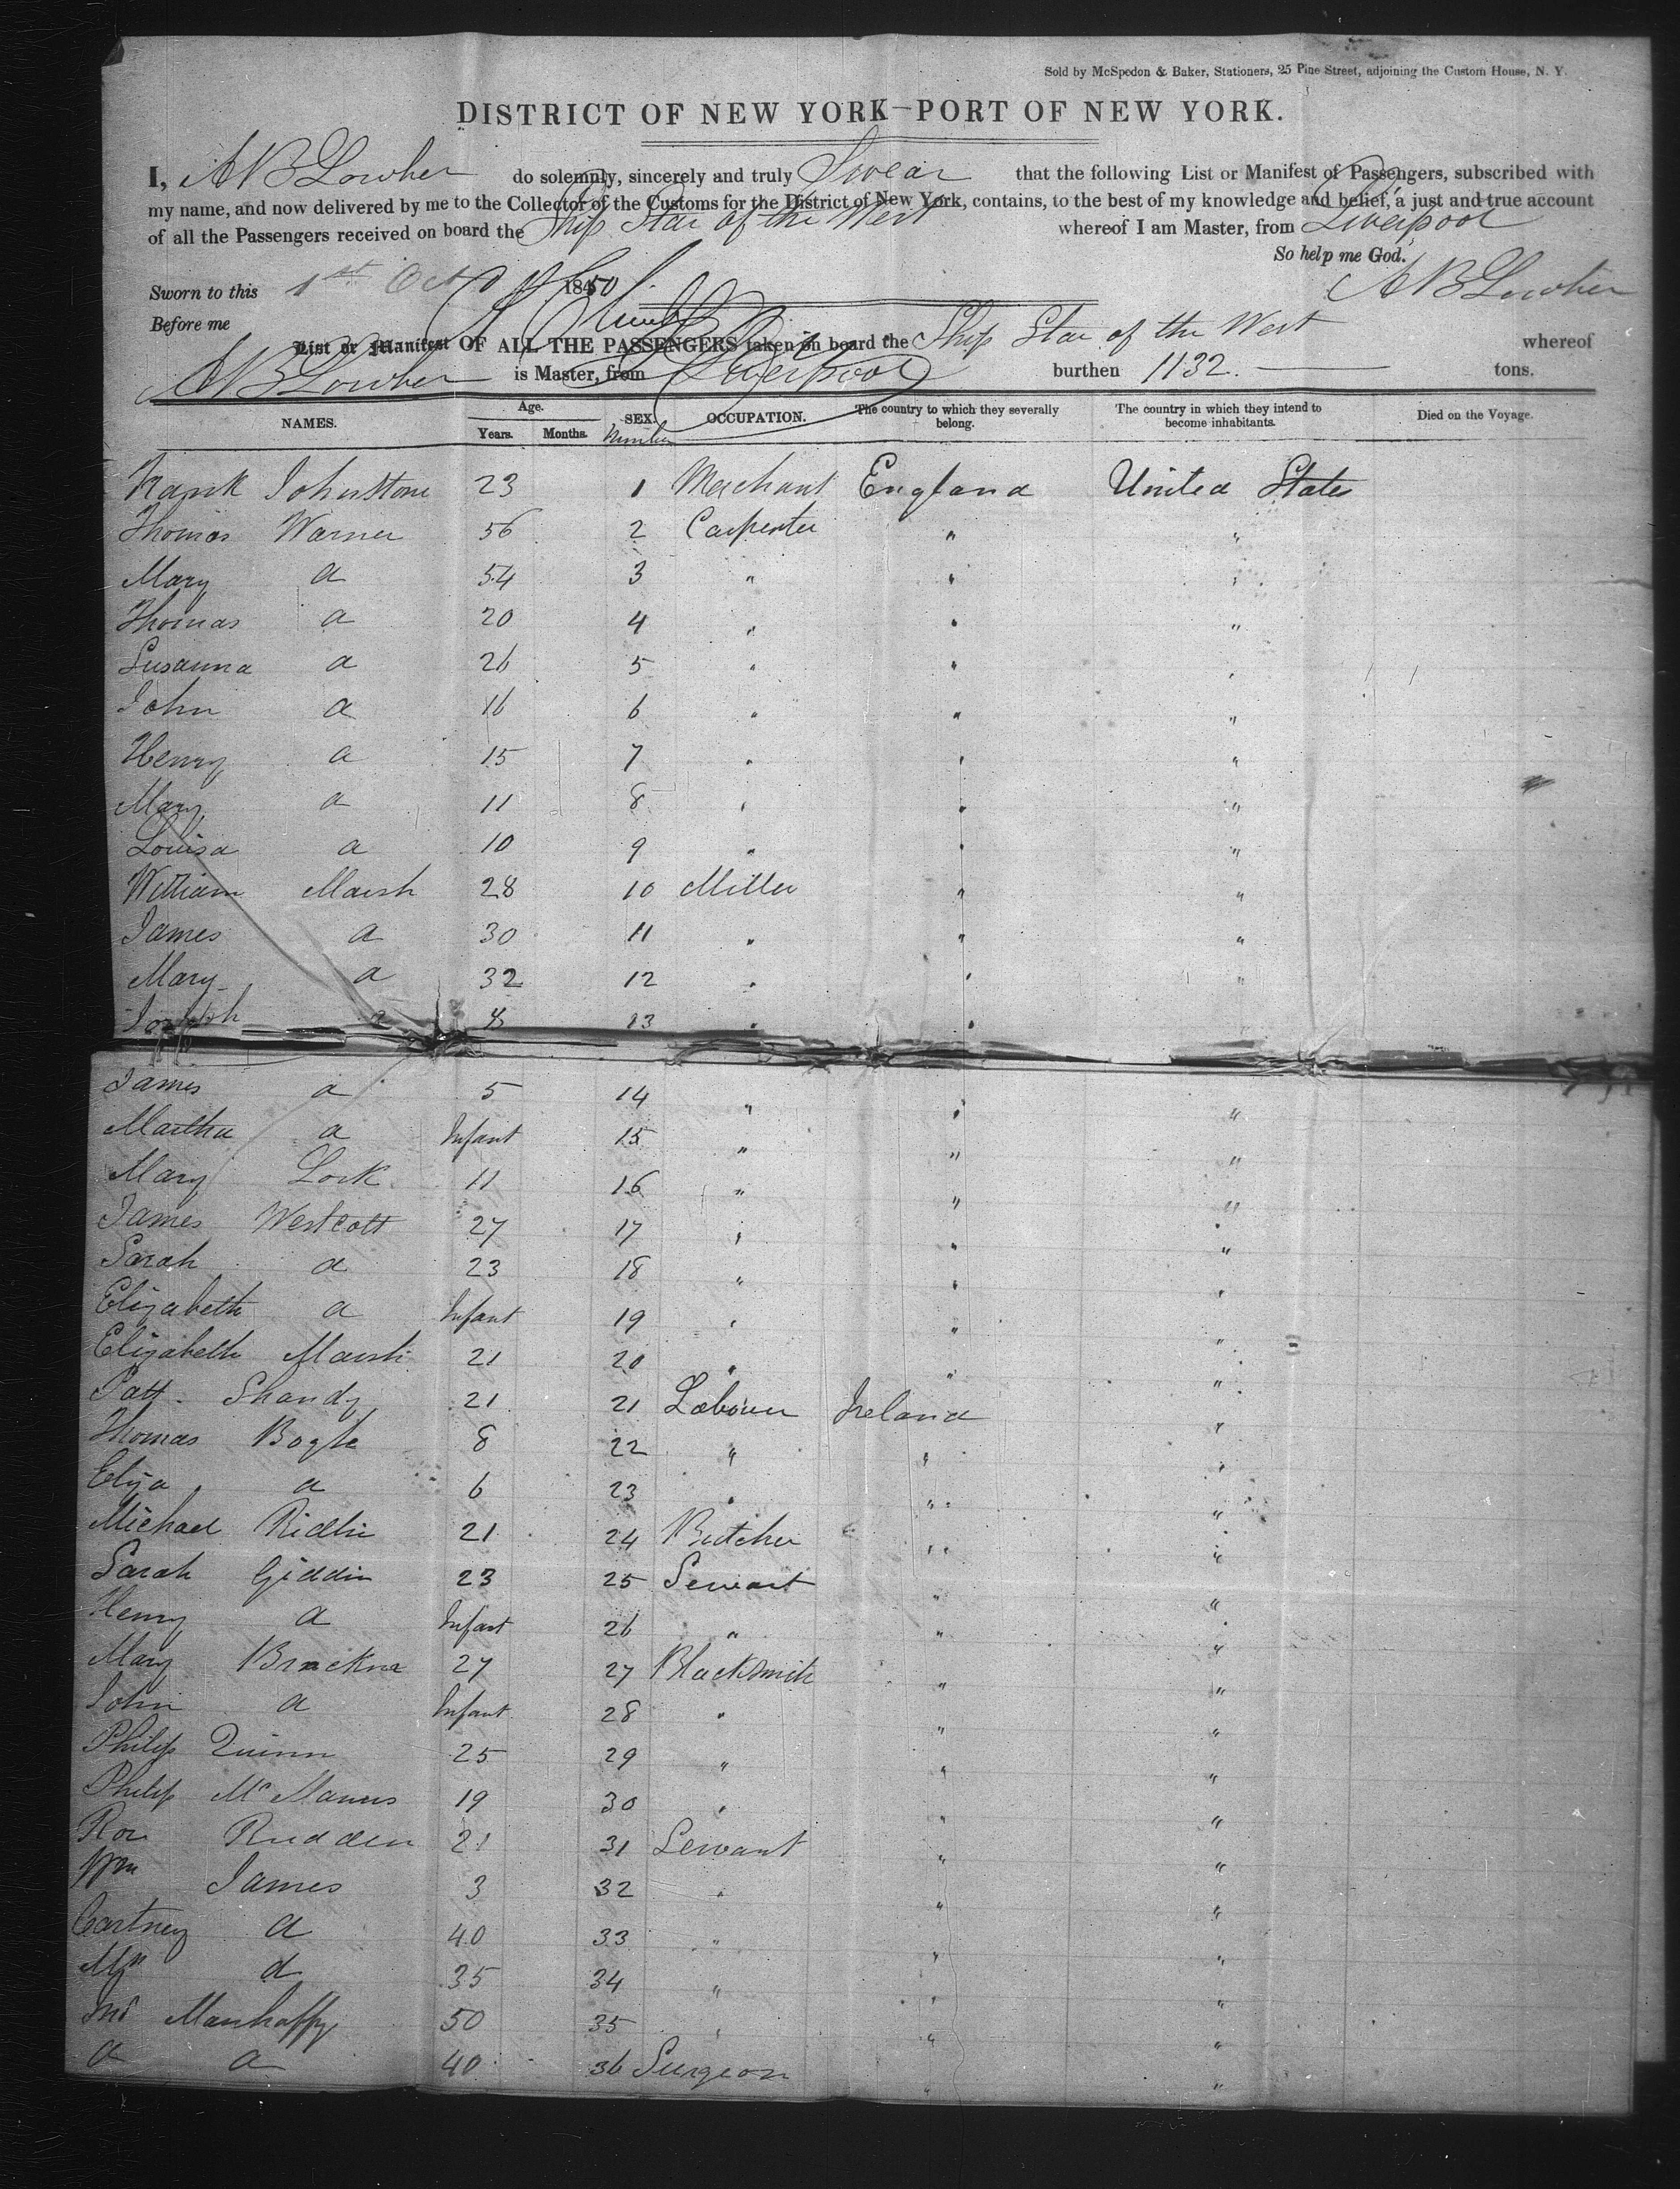 Sold by McSpedon & Baker, Stationers, 25 Pine Street, adjoining the Custom House, N. Y.
DISTRICT OF NEW YORK—PORT OF NEW YORK.
I, A B Lowber do solemnly, sincerely and truly Swear that the following List or Manifest of Passengers, subscribed with
my name, and now delivered by me to the Collector of the Customs for the District of New York, contains, to the best of my knowledge and belief, a just and true account
of all the Passengers received on board the Ship Star of the West whereof I am Master, from Liverpool
So help me God.
Sworn to this 1st Oct 1850 A B Lowber
Before me
List or Manifest OF ALL THE PASSENGERS taken on board the Ship Star of the West whereof
A B Lowber is Master, from Liverpool burthen 1132. tons.
NAMES. Age. Years. Months. SEX. Number OCCUPATION. The country to which they severally belong. The country in which they intend to become inhabitants. Died on the Voyage.
Frank Johnstone 23 1 Merchant England United States
Thomas Warner 56 2 Carpenter " "
Mary a 54 3 " " "
Thomas a 20 4 " " "
Susanna a 26 5 " " "
John a 16 6 " " "
Henry a 15 7 " " "
Mary a 11 8 " " "
Louisa a 10 9 " " "
William Marsh 28 10 Miller " "
James a 30 11 " " "
Mary a 32 12 " " "
Joseph a 8 13 " "
James a 5 14 " " "
Martha a Infant 15 " " "
Mary Lock 11 16 " " "
James Westcott 27 17 " " "
Sarah a 23 18 " " "
Elizabeth a Infant 19 " " "
Elizabeth Marsh 21 20 " " "
Patt. Shandy 21 21 Labourer Ireland "
Thomas Bogle 8 22 " " "
Eliza a 6 23 " " "
Michael Ridlin 21 24 Butcher " "
Sarah Giddin 23 25 Servant " "
Henry a Infant 26 " " "
Mary Brackna 27 27 Blacksmith " "
John a Infant 28 " " "
Philip Quinn 25 29 " " "
Philip McManus 19 30 " " "
Rudden 21 31 Servant " "
Wm James 3 32 " " "
Cartney a 40 33 " " "
d 35 34 " " "
Manhaffy 50 35 " " "
a a 40 36 Surgeon " "